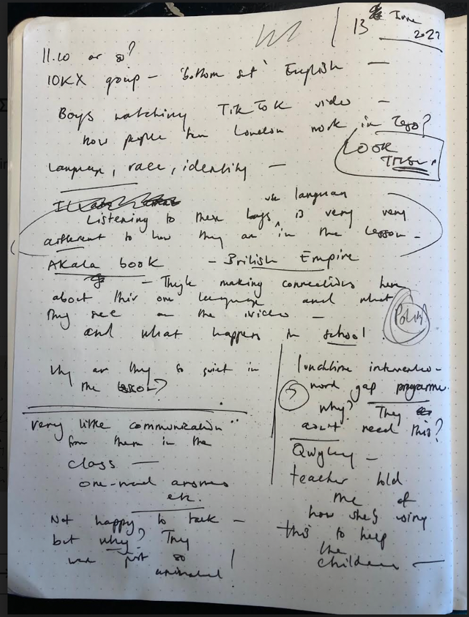 13th June
2021
11.10 or so?
10KX group - 'bottom set' English -
Boys watching TikTok video -
how people
London
in Togo?
LOOK
THIS UP
Language, race, identity -
language
Listening to these boys is very very
different to how they are in the lesson -
AKala book - British Empire
- They're making connections here
about their own language and what
they see on the video -
and what happens in school!
Why are they so quiet in
the lesson?
very little communication
from them in the
class -
one-word answers
etc.
Not happy to talk -
but why? They
were just so
animated!
lunchtime intervention -
word gap programme.
why? They
don't need this?
Quigley -
teacher told
me of
how she's using
this to help
the
children -